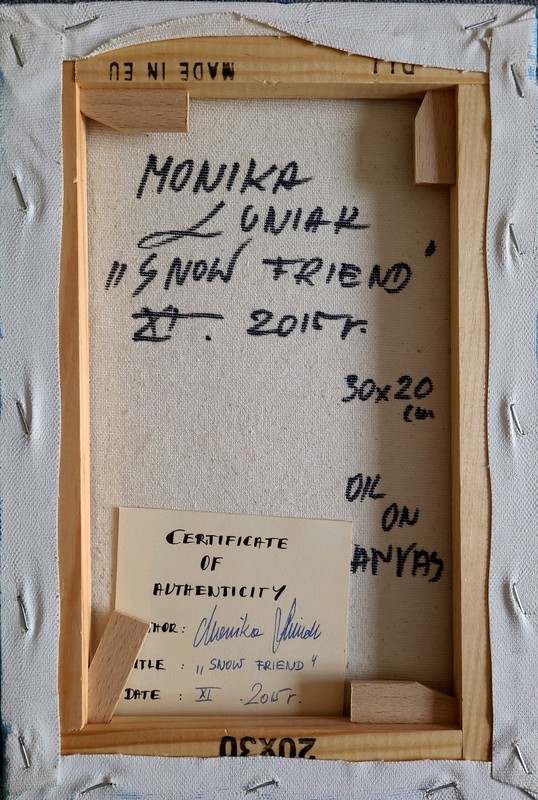 MADE IN EU
MONIKA
LUNIAK
„SNOW FRIEND"
XI. 2015 r.
30x20
cm
OIL
ON
ANVAS
CERTIFICATE
OF
AUTHENTICITY
THOR: Monika
ITLE : „SNOW FRIEND"
DATE : XI . 2015 r.
20X30